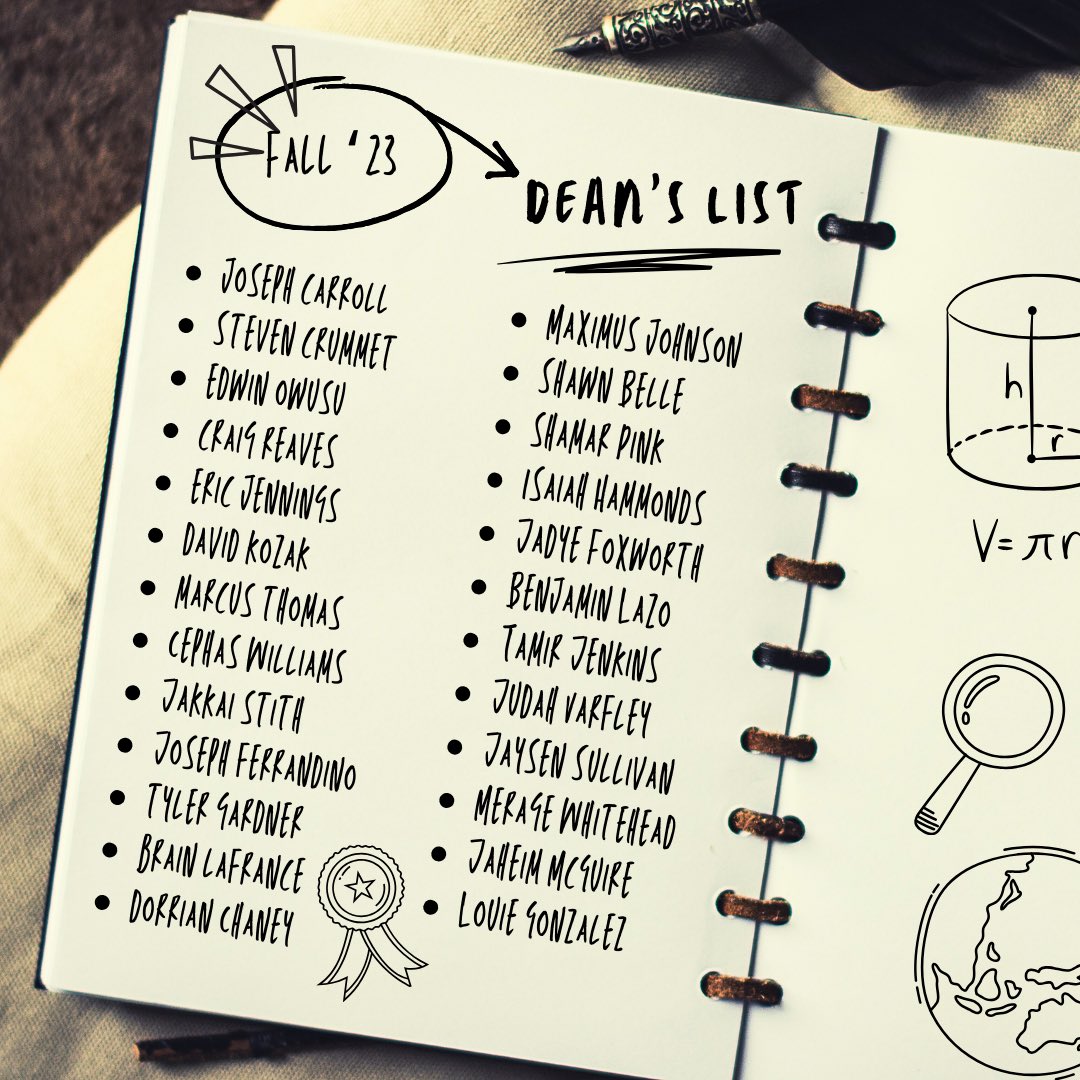 FALL '23
DEAN'S LIST
JOSEPH CARROLL
STEVEN CRUMMET
EDWIN OWUSU
CRAIG REAVES
ERIC JENNINGS
DAVID KOZAK
MARCUS THOMAS
CEPHAS WILLIAMS
JAKKAI STITH
JOSEPH FERRANDINO
TYLER GARDNER
BRAIN LAFRANCE
DORRIAN CHANEY
MAXIMUS JOHNSON
SHAWN BELLE
SHAMAR PINK
ISAIAH HAMMONDS
JADYE FOXWORTH
BENJAMIN LAZO
TAMIR JENKINS
JUDAH VARFLEY
JAYSEN SULLIVAN
MERAGE WHITEHEAD
JAHEIM MCGUIRE
LOUIE GONZALEZ
h
r
V=πr